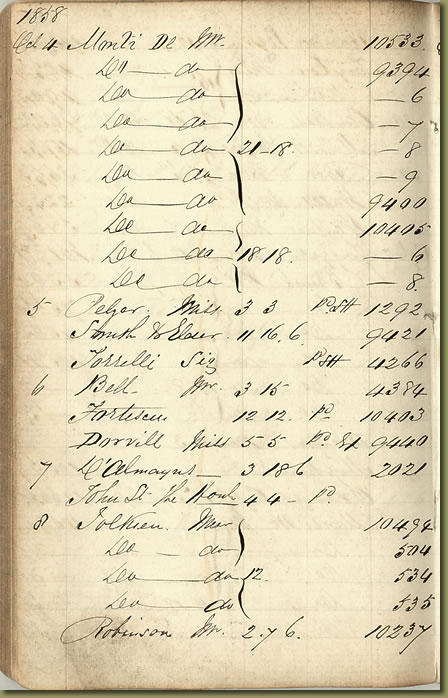 1858
Oct 4 Monti De Mr. 10533
Do — do 9394
Do — do — 6
Do — do — 7
Do — do 21-18. — 8
Do — do — 9
Do — do 9400
Do — do 10405
Do — do 18 18. — 6
Do — do — 8
5 Pelzer. Miss 3 3 Pd SH 1292
Smith & Elder 11 16. 6. 9421
Torrelli Sig Pd SH 4266
6 Bell Mr. 3 15 4384
Fortescue 12 12. Pd 10403
Dorvill Miss 5 5 Pd 9440
7 D'Almayne — 3 18 6 2021
John St. the Honble 4 4 – Pd.
8 Tolkien 10494
Do — do 504
Do — do 12. 534
Do — do 535
Robinson Mr. 2. 7 6. 10237